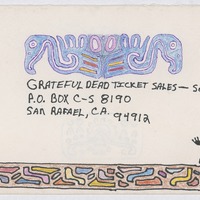 GRATEFUL DEAD TICKET SALES — S
P.O. BOX C-S 8190
SAN RAFAEL, CA.
94912